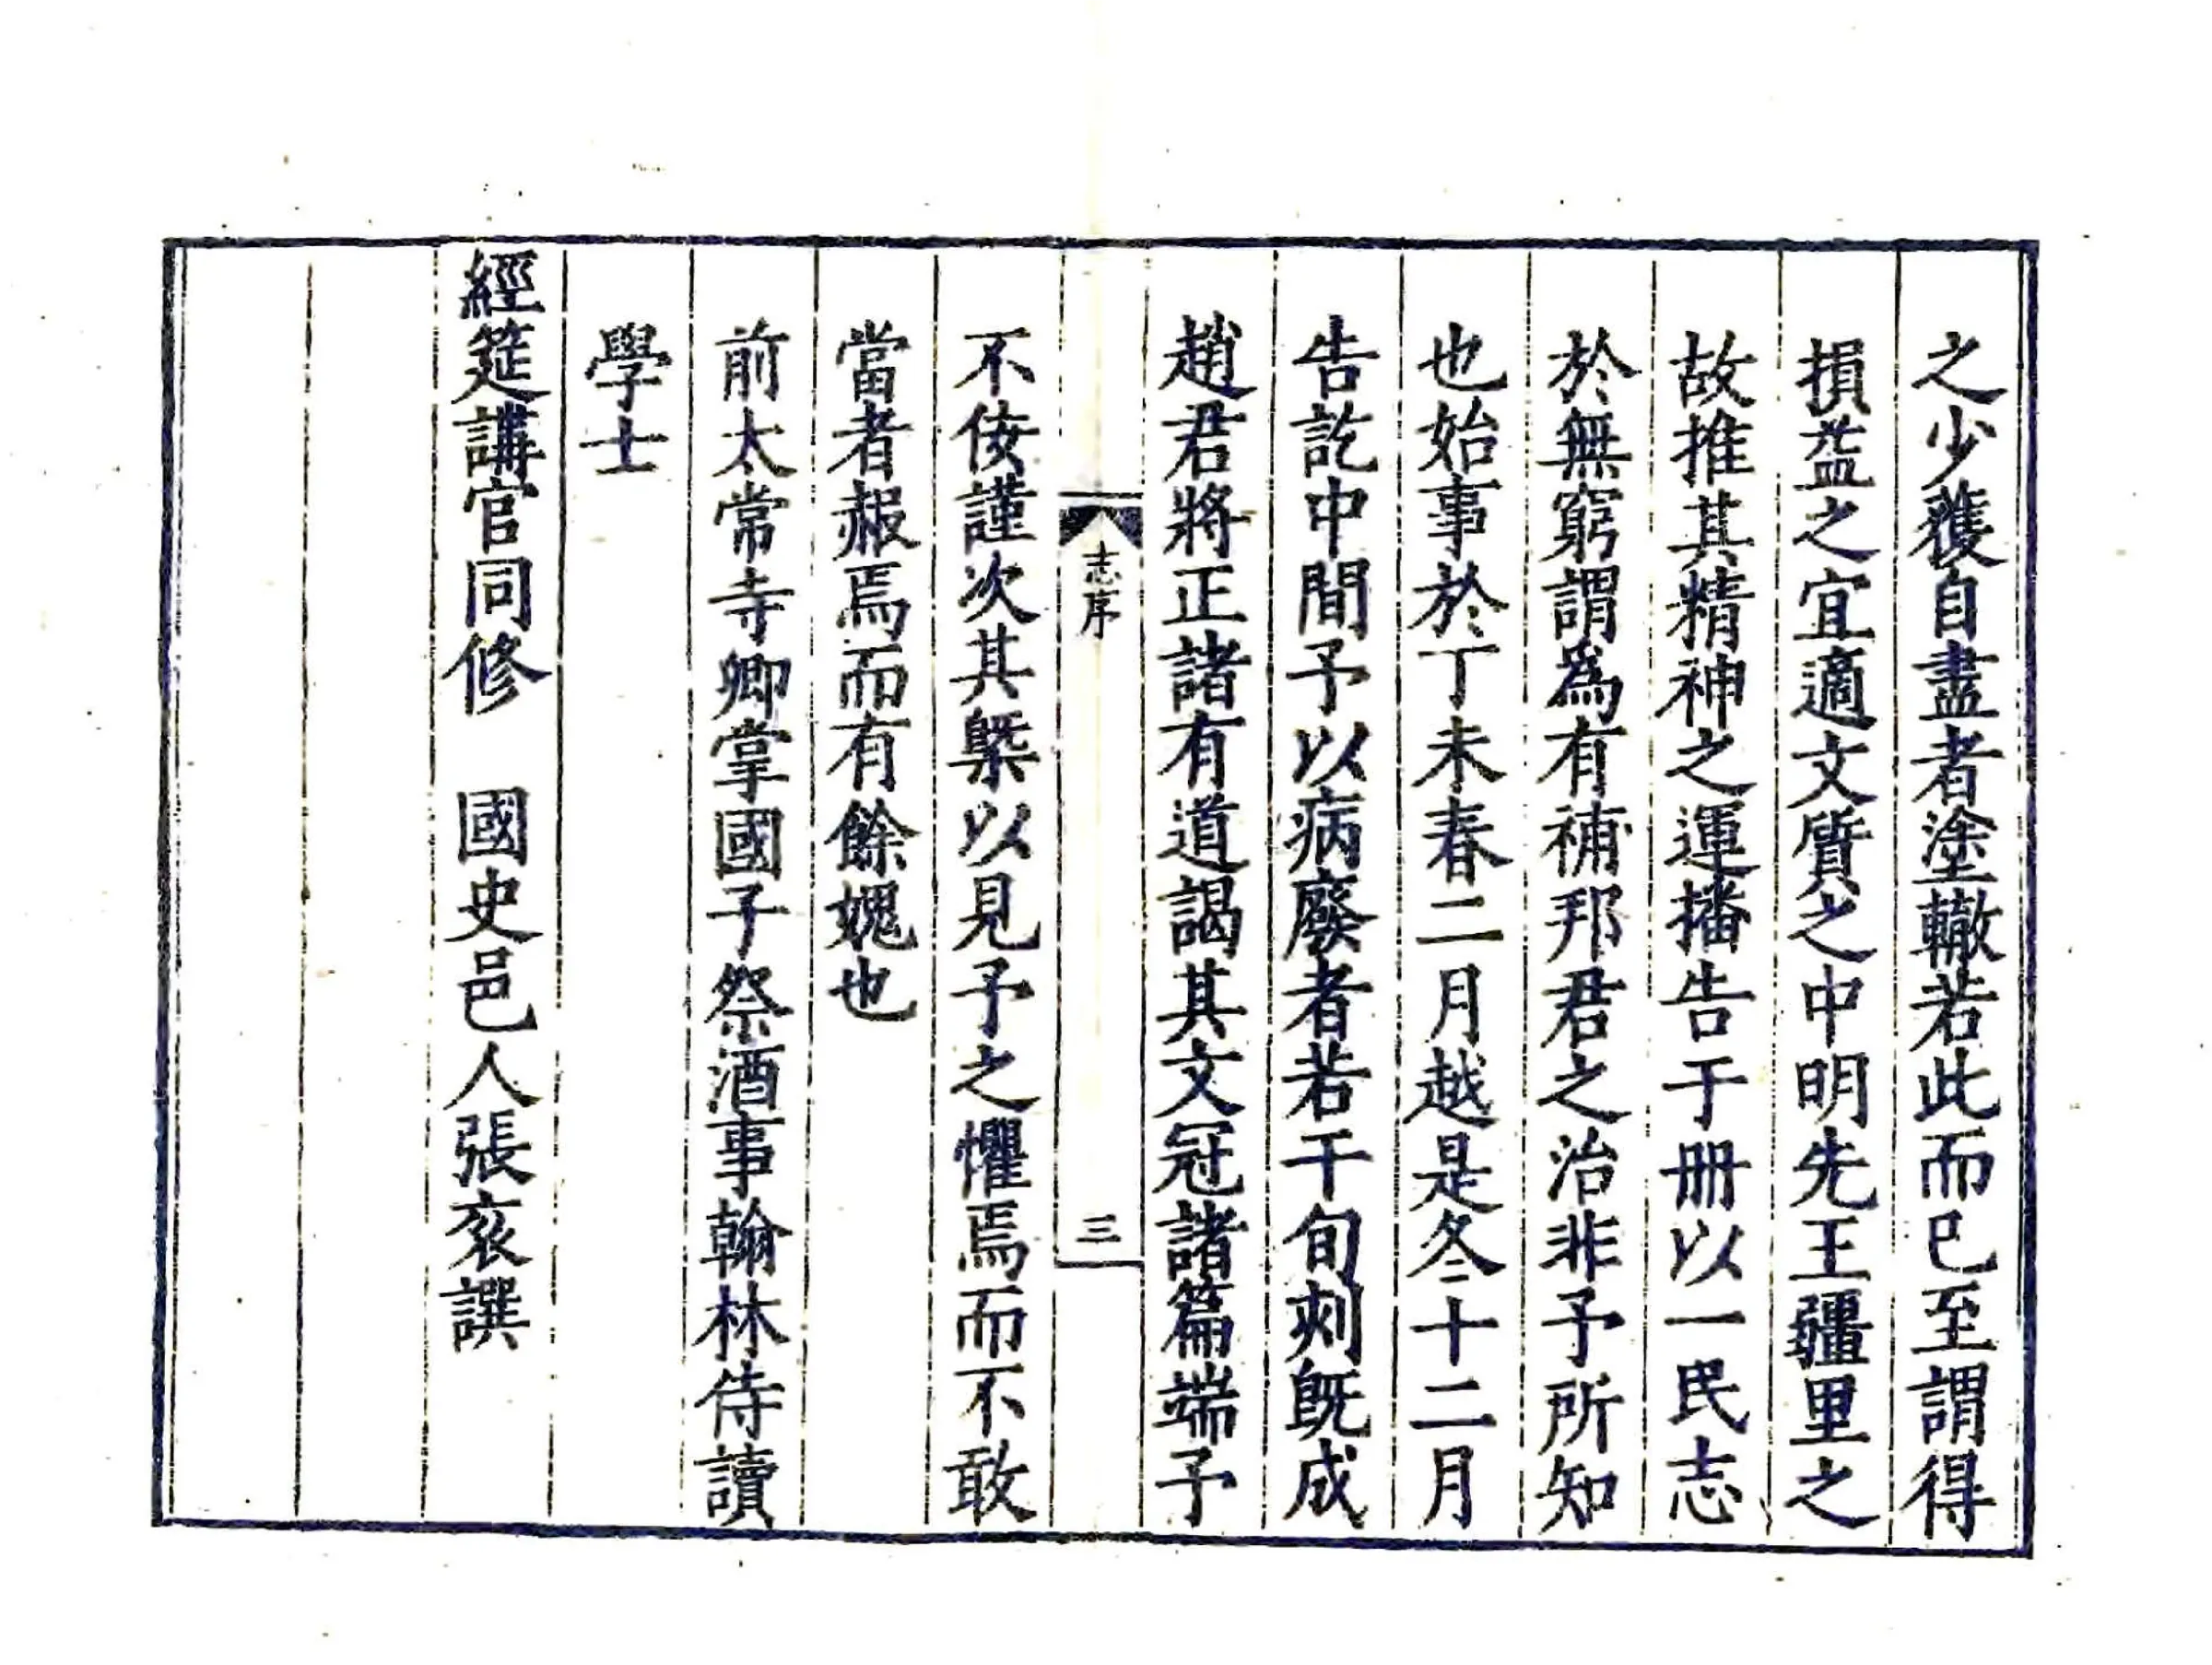 之少蒦自盡者塗轍若此而已至謂得
損益之宜適文質之中明先王疆里之
故推其精神之運播告于冊以一民志
於無窮謂爲有補邦君之治非予所知
也始事於丁未春二月越是冬十二月
告訖中間予以病廢者若干旬刻既成
趙君將正諸有道謁其文冠諸篇端予
志序
三
不佞謹次其槩以見予之懼焉而不敢
當者赧焉而有餘媿也
前太常寺卿掌國子祭酒事翰林侍讀
學士
經筵講官同修 國史邑人張袞譔